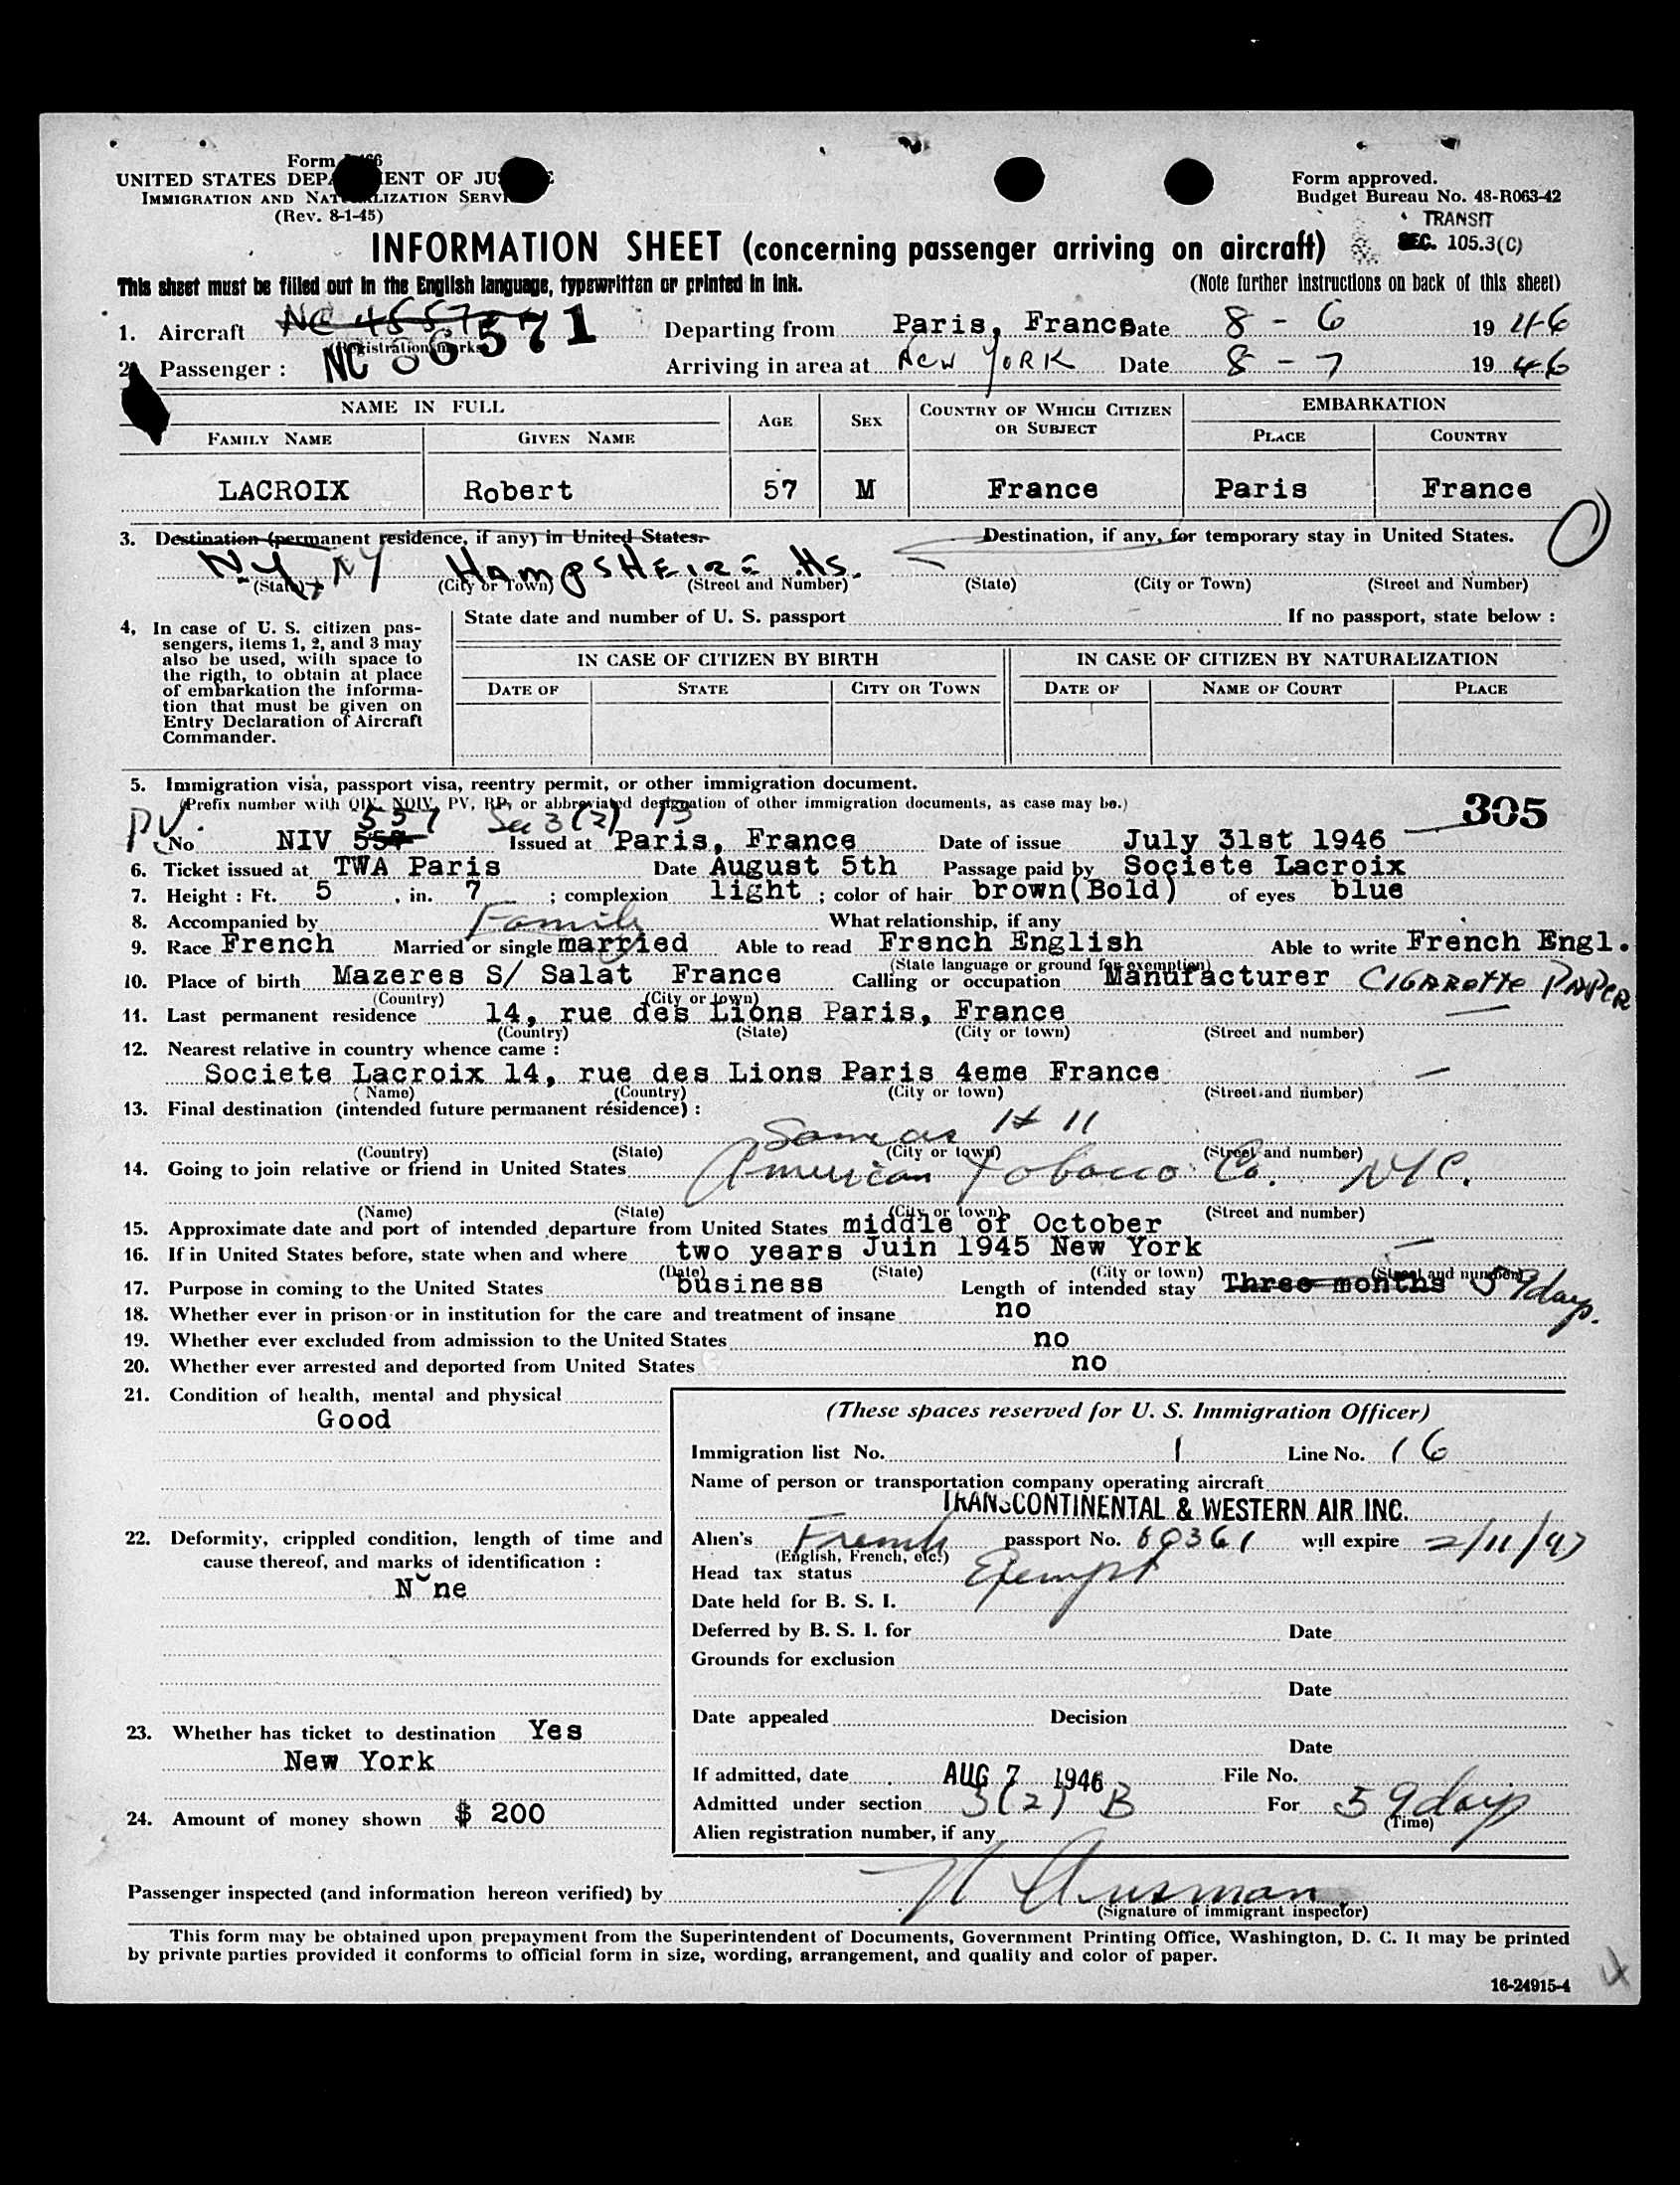 Form I-466
UNITED STATES DEPARTMENT OF JUSTICE
IMMIGRATION AND NATURALIZATION SERVICE
(Rev. 8-1-45)
Form approved.
Budget Bureau No. 48-R063-42
TRANSIT
SEC. 105.3(C)
INFORMATION SHEET (concerning passenger arriving on aircraft)
This sheet must be filled out in the English language, typewritten or printed in ink.
(Note further instructions on back of this sheet)
1. Aircraft NC 86571 Departing from Paris, France Date 8 - 6 1946
(Registration marks)
2. Passenger : Arriving in area at New YORK Date 8 - 7 1946
NAME IN FULL AGE SEX COUNTRY OF WHICH CITIZEN OR SUBJECT EMBARKATION
FAMILY NAME GIVEN NAME PLACE COUNTRY
LACROIX Robert 57 M France Paris France
3. Destination (permanent residence, if any) in United States. Destination, if any, for temporary stay in United States.
N.Y. NY HAMPSHEIRE HS.
(State) (City or Town) (Street and Number) (State) (City or Town) (Street and Number)
4, In case of U. S. citizen pas-
sengers, items 1, 2, and 3 may
also be used, with space to
the rigth, to obtain at place
of embarkation the informa-
tion that must be given on
Entry Declaration of Aircraft
Commander.
State date and number of U. S. passport If no passport, state below :
IN CASE OF CITIZEN BY BIRTH IN CASE OF CITIZEN BY NATURALIZATION
DATE OF STATE CITY OR TOWN DATE OF NAME OF COURT PLACE
5. Immigration visa, passport visa, reentry permit, or other immigration document.
(Prefix number with QIV, NQIV, PV, RP, or abbreviated designation of other immigration documents, as case may be.)
305
PV. 557 Sec 3(2) B
No NIV 557 Issued at Paris, France Date of issue July 31st 1946
6. Ticket issued at TWA Paris Date August 5th Passage paid by Societe Lacroix
7. Height : Ft. 5 , in. 7 ; complexion light ; color of hair brown(Bold) of eyes blue
8. Accompanied by Family What relationship, if any
9. Race French Married or single married Able to read French English Able to write French Engl.
(State language or ground for exemption)
10. Place of birth Mazeres S/ Salat France Calling or occupation Manufacturer CIGARETTE PAPER
(Country) (City or town)
11. Last permanent residence 14, rue des Lions Paris, France
(Country) (State) (City or town) (Street and number)
12. Nearest relative in country whence came :
Societe Lacroix 14, rue des Lions Paris 4eme France
(Name) (Country) (City or town) (Street and number)
13. Final destination (intended future permanent résidence) :
Same as # 11
(Country) (State) (City or town) (Street and number)
14. Going to join relative or friend in United States American Tobacco Co. NYC.
(Name) (State) (City or town) (Street and number)
15. Approximate date and port of intended departure from United States middle of October
16. If in United States before, state when and where two years Juin 1945 New York
(Date) (State) (City or town) (Street and number)
17. Purpose in coming to the United States business Length of intended stay Three months 59 days.
18. Whether ever in prison or in institution for the care and treatment of insane no
19. Whether ever excluded from admission to the United States no
20. Whether ever arrested and deported from United States no
21. Condition of health, mental and physical
Good
22. Deformity, crippled condition, length of time and
cause thereof, and marks of identification :
None
23. Whether has ticket to destination Yes
New York
24. Amount of money shown $ 200
(These spaces reserved for U. S. Immigration Officer)
Immigration list No. 1 Line No. 16
Name of person or transportation company operating aircraft
TRANSCONTINENTAL & WESTERN AIR INC.
Alien's French passport No. 60361 will expire 2/11/47
(English, French, etc.)
Head tax status Exempt
Date held for B. S. I.
Deferred by B. S. I. for Date
Grounds for exclusion
Date
Date appealed Decision
Date
If admitted, date AUG 7 1946 File No.
Admitted under section 3(2) B For 59 days
(Time)
Alien registration number, if any
Passenger inspected (and information hereon verified) by
(Signature of immigrant inspector)
This form may be obtained upon prepayment from the Superintendent of Documents, Government Printing Office, Washington, D. C. It may be printed
by private parties provided it conforms to official form in size, wording, arrangement, and quality and color of paper.
16-24915-4